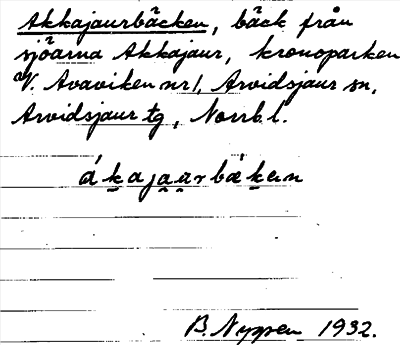 Akkajaurbäcken, bäck från
sjöarna Akkajaur, kronoparken
V. Avaviken nr 1, Arvidsjaur sn,
Arvidsjaur tg, Norrb. l.
ákajaarbäken
B. Nyppen 1932.